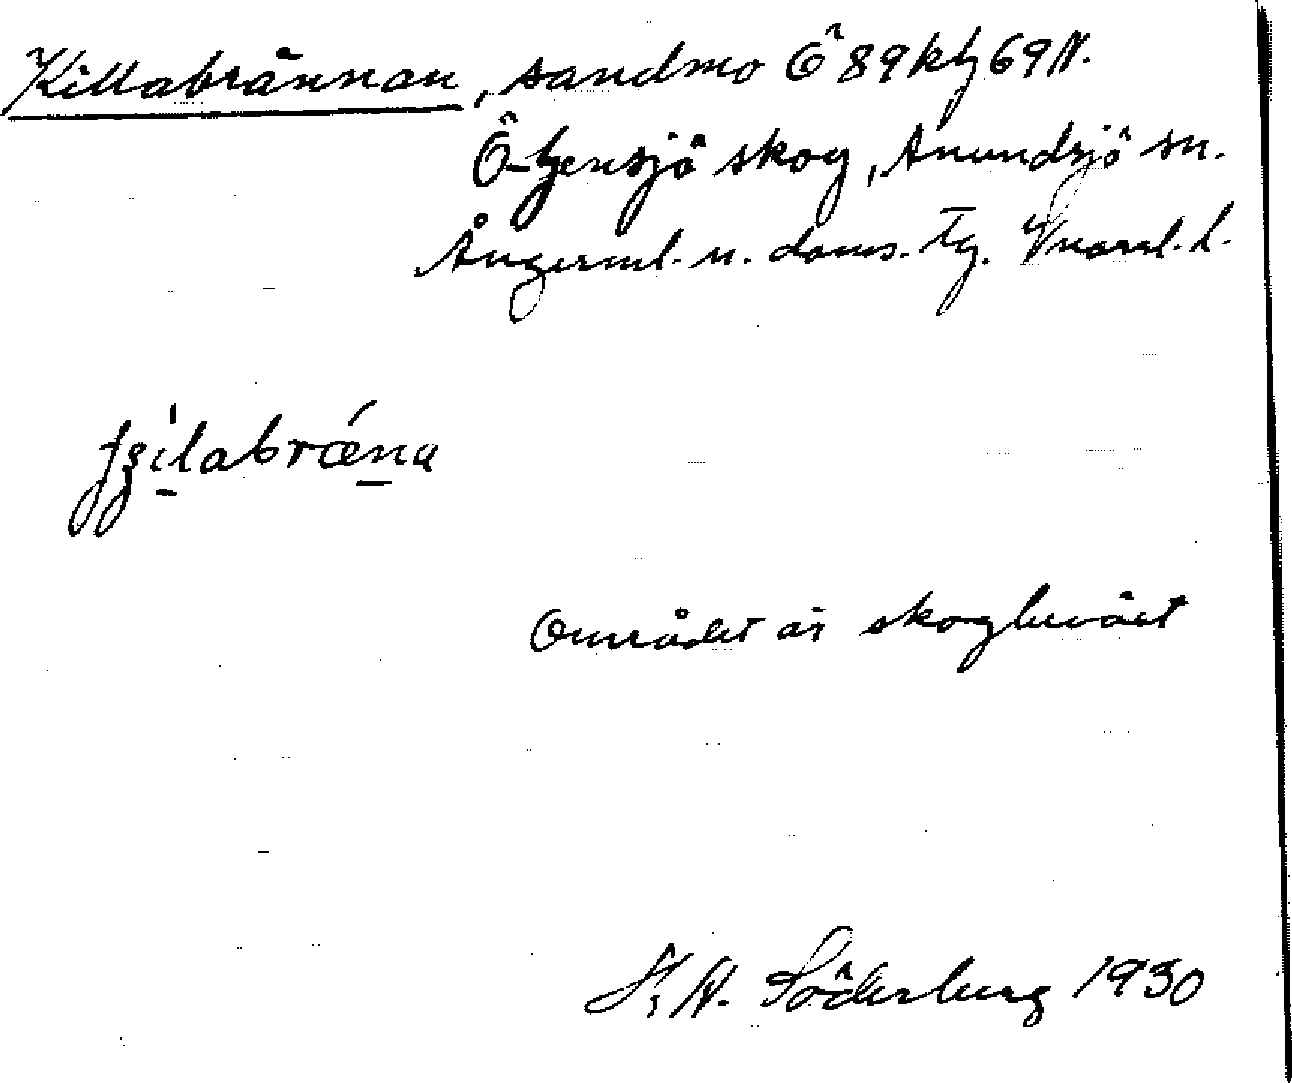 Killabrännan, sandmo Ö 89 kf 69 N.
Ö-Gensjö skog, Anundsjö sn.
Ångerml. n. doms. Tg. Vnorrl. l.
fʂilabrǽna
Området är skogbeväxt
K. H. Söderberg 1930